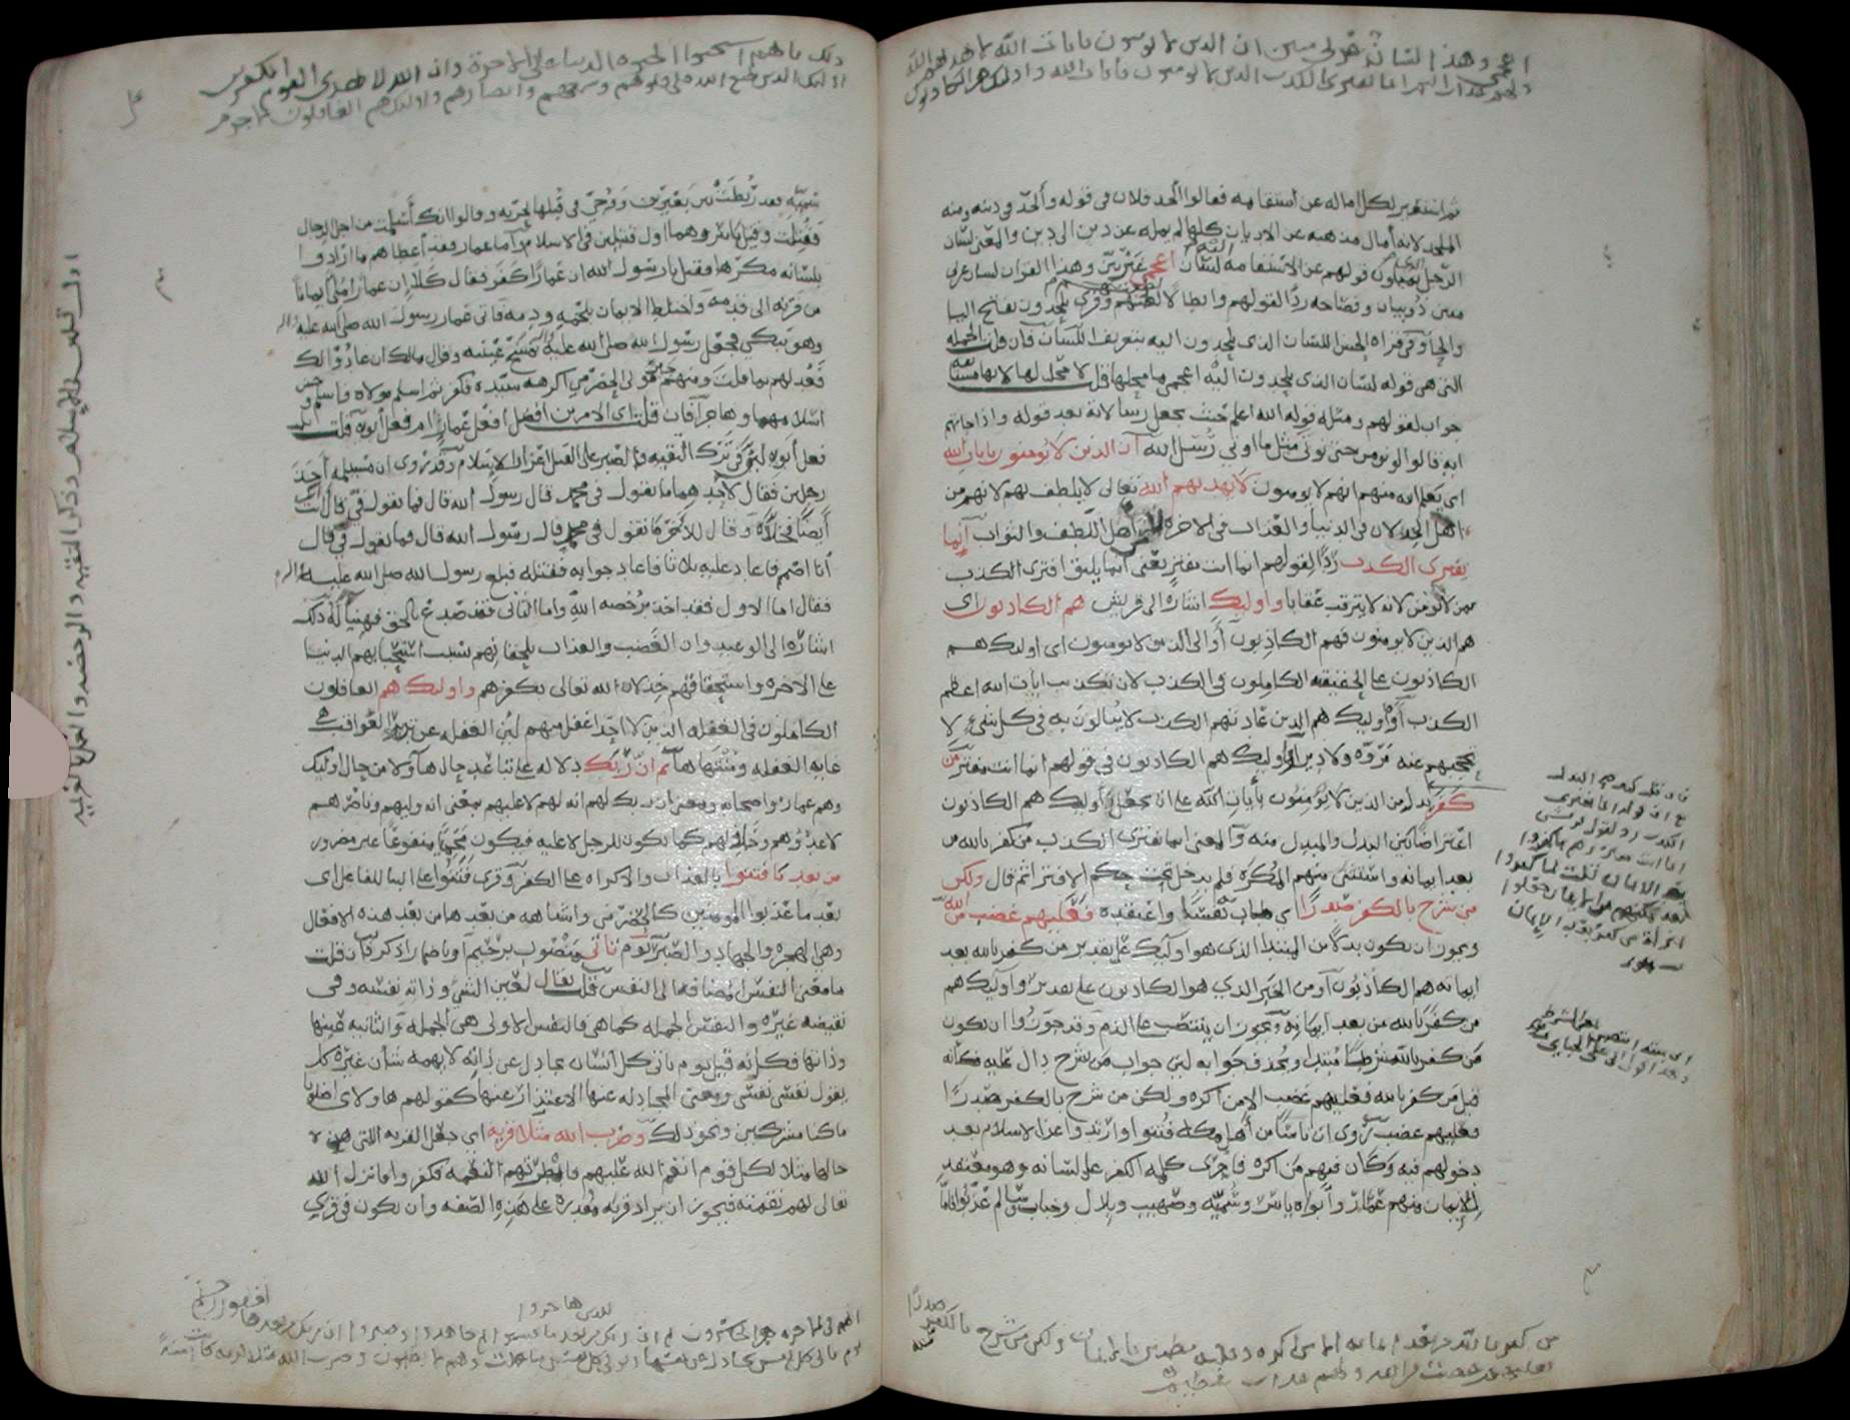 اعجمي وهذا لسان عربي مبين ان الذين لا يومنون بايات الله لا يهديهم الله
ولهم عذاب اليم انما يفترى الكذب الذين لا يومنون بايات الله واوليك هم الكاذبون
ثم استعير لكل اماله عن استقامه فقالوا الحد فلان في قوله والحد في دينه ومنه
الملحد لانه أمال مذهبه عن الاديان كلها لم يمله عن دين الى دين والمعنى لسان
الرجل الذى يميلون قولهم عن الاستقامه اليه لسان اعجمى غير بين وهذا القران لسان عربي
مبين ذو بيان وفصاحه ردا لقولهم وابطالا لطعنهم وقرى يلحدون بفتح اليا
والحا وفي قراه الحسن اللسان الذى يلحدون اليه بتعريف اللسان فان قلت الجمله
التى هى قوله لسان الذى يلحدون اليه اعجمى ما محلها قلت لا محل لها لانها مستانفه
جواب لقولهم ومثله قوله الله اعلم حيث يجعل رسالاته بعد قوله واذا جاتهم
ايه قالوا لن نومن حتى نوتى مثل ما اوتي رسل الله ان الذين لا يومنون بايات الله
اى يعلم الله منهم انهم لا يومنون لا يهديهم الله تعالى لا يلطف بهم لانهم من
اهل الخذلان في الدنيا والعذاب في الاخره لا من اهل اللطف والثواب انما
يفترى الكذب ردا لقولهم انما انت مفتر يعنى انما يليق افترى الكذب
بمن لا يومن لانه لا يترقب عقابا واوليك اشاره الى قريش هم الكاذبون اى
هم الذين لا يومنون فهم الكاذبون او الى الذين لا يومنون اى اوليك هم
الكاذبون على الحقيقه الكاملون في الكذب لان تكذيب ايات الله اعظم
الكذب او اوليك هم الذين عادتهم الكذب لا يبالون به في كل شى لا
تحجبهم عنه مروه ولا دين او اوليك هم الكاذبون في قولهم انما انت مفتر من
كفر بدل من الذين لا يومنون بأيات الله على ان يجعل واوليك هم الكاذبون
اعتراضا بين البدل والمبدل منه والمعنى انما يفترى الكذب من كفر بالله من
بعد ايمانه واستثنى منهم المكره فلم يدخل تحت حكم الافترا ثم قال ولكن
من شرح بالكفر صدرا اي طاب به نفسا واعتقده فعليهم غضب من الله
ويجوز ان يكون بدلا من المبتدا الذى هو اوليك على تقدير من كفر بالله بعد
ايمانه هم الكاذبون او من الخبر الذي هو الكاذبون على تقدير واوليك هم
من كفر بالله من بعد ايمانه ويجوز ان ينتصب على الذم وقد جوزوا ان يكون
من كفر بالله شرطا مبتدا ويحذف جوابه لان جواب من شرح دال عليه فكانه
قيل من كفر بالله فعليهم غضب الا من اكره ولكن من شرح بالكفر صدرا
فعليهم غضب روى ان ناسا من أهل مكه فتنوا وارتدوا عن الاسلام بعد
دخولهم فيه وكان فيهم من اكره فاجرى كلمه الكفر على لسانه وهو معتقد
للايمان منهم عمار وأبواه ياسر وسميه وصهيب وبلال وخباب وسالم عذبوا فاما
من كفر بالله من بعد ايمانه الا من اكره وقلبه مطمين بالايمان ولكن من شرح بالكفر صدرا
فعليهم غضب من الله ولهم عذاب عظيم
ذلك بانهم استحبوا الحيوه الدنيا على الاخرة وان الله لا يهدى القوم الكفرين
اوليك الذين طبع الله على قلوبهم وسمعهم وابصارهم واوليك هم الغافلون لا جرم
سميه فقد ربطت بين بعيرين ووجي في قبلها بحربه وقالوا انك أسلمت من اجل الرجال
فقتلت وقتل ياسر وهما اول قتيلين في الاسلام واما عمار فقد أعطاهم ما ارادوا
بلسانه مكرها فقيل يا رسول الله ان عمارا كفر فقال كلا ان عمارا ملى ايمانا
من قرنه الى قدمه واختلط الايمان بلحمه ودمه فاتى عمار رسول الله صلى الله عليه واله
وهو يبكي فجعل رسول الله صلى الله عليه واله يمسح عينيه وقال مالك ان عادوا لك
فعد لهم بما قلت ومنهم جبر مولى الحضرمي اكرهه سيده فكفر ثم اسلم مولاه واسلم وحسن
اسلامهما وهاجرا فان قلت اى الامرين افضل افعل عمار ام فعل أبويه قلت بل
فعل أبويه لان في ترك التقيه والصبر على القتل اعزازا للاسلام وقد روى ان مسيلمه اخذ
رجلين فقال لأحدهما ما تقول في محمد قال رسول الله قال فما تقول في قال انت
أيضا فخلاه وقال للاخر ما تقول في محمد قال رسول الله قال فما تقول في قال
أنا اصم فاعاد عليه ثلاثا فاعاد جوابه فقتله فبلغ رسول الله صلى الله عليه واله
فقال اما الاول فقد اخذ برخصه الله واما الثانى فقد صدع بالحق فهنيا له ذلك
اشاره الى الوعيد وان الغضب والعذاب يلحقانهم بسبب استحبابهم الدنيا
على الاخره واستحقاقهم خذلان الله تعالى بكفرهم واوليك هم الغافلون
الكاملون في الغفله الذين لا احد اغفل منهم لان الغفله عن تدبر العواقب هى
غايه الغفله ومنتهاها ثم ان ربك دلاله على تباعد حال هاولا من حال اوليك
وهم عمار واصحابه ومعنى ان ربك لهم انه لهم لا عليهم بمعنى انه وليهم وناصرهم
لا عدوهم وخاذلهم كما يكون للرجل لا عليه فيكون محميا منفوعا غير مضرور
من بعد ما فتنوا بالعذاب والاكراه على الكفر وقرى فتنوا على البنا للفاعل اى
بعد ما عذبوا المومنين كالحضرمى واشباهه من بعدها من بعد هذه الافعال
وهى الهجره والجهاد والصبر يوم تاتى منصوب برحيم او باضمار اذكر فان قلت
ما معنى النفس المضافه الى النفس قلت يقال لعين الشى وذاته نفسه وفى
نقيضه غيره والنفس الجمله كما هى فالنفس الاولى هى الجمله والثانيه عينها
وذاتها فكانه قيل يوم ياتى كل انسان يجادل عن ذاته لا يهمه شأن غيره كل
يقول نفسى نفسى ومعنى المجادله عنها الاعتذار عنها كقولهم هاولاى اضلونا
ما كنا مشركين ونحو ذلك وضرب الله مثلا قريه اى جعل القريه التى هذه
حالها مثلا لكل قوم انعم الله عليهم فابطرتهم النعمه فكفروا فانزل الله
تعالى بهم نقمته فيجوز ان يراد قريه مقدره على هذه الصفه وان يكون في قرى
انهم فى الاخره هم الخاسرون ثم ان ربك للذين هاجروا من بعد ما فتنوا ثم جاهدوا وصبروا ان ربك من بعدها لغفور رحيم
يوم تاتى كل نفس تجادل عن نفسها وتوفى كل نفس ما عملت وهم لا يظلمون وضرب الله مثلا قريه كانت امنة